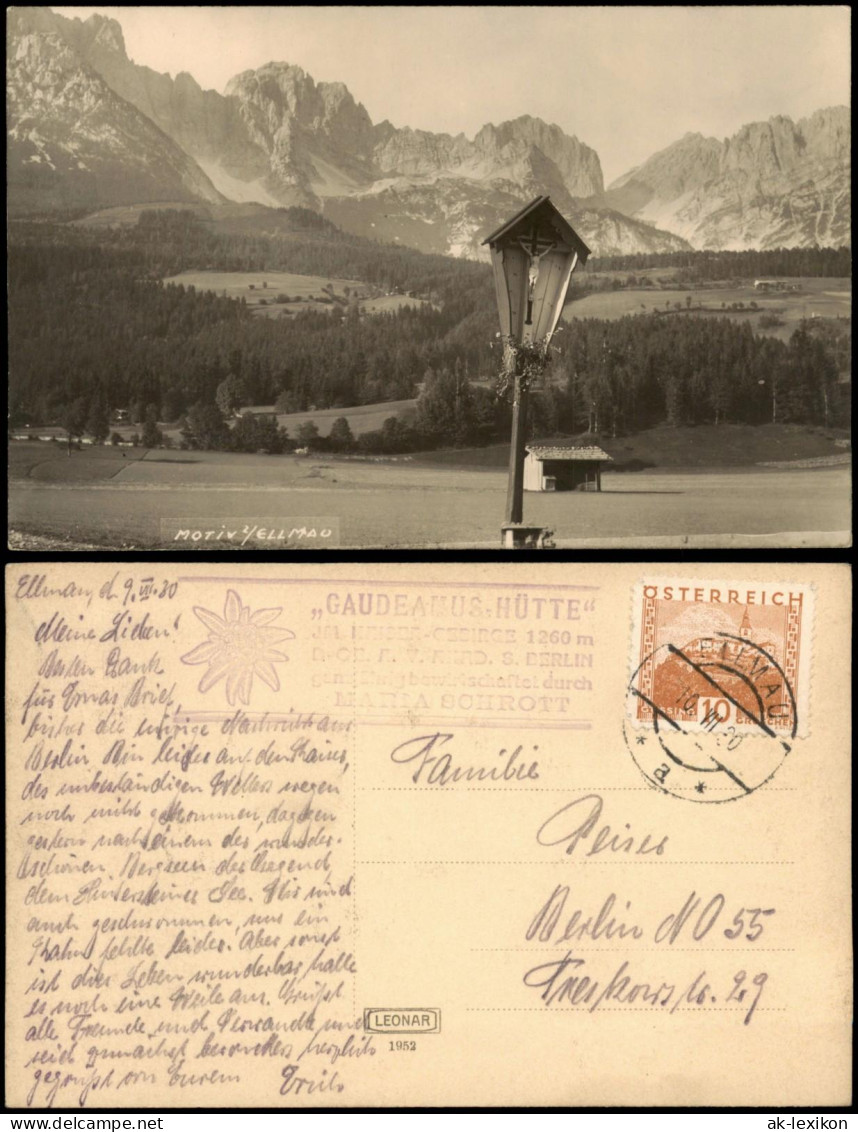 MOTIV V/ELLMAU
Ellmau, d 9.VII.30
Meine Lieben!
Besten Dank
für Ernas Brief,
bisher die einzige Nachricht aus
Berlin. Bin leider auf den Kaiser,
des unbeständigen Wetters wegen
noch nicht gekommen, dagegen
gestern nach einem der wunder-
schönen Bergseen der Gegend
dem Hintersteiner See. Wir sind
auch geschwommen, nur ein
Kahn fehlte leider. Aber sonst
ist dies Leben wunderbar, halte
es noch eine Weile aus. Grüßt
alle Freunde und Verwandte und
seid zunächst besonders herzlich
gegrüßt von Eurem
„GAUDEAMUS-HÜTTE“
IM KAISER-GEBIRGE 1260 m
S. BERLIN
ganzjährig bewirtschaftet durch
MARIA SCHROTT
ÖSTERREICH
10 GROSCHEN
ELLMAU
10.VII.30
* a *
Familie
Peiser
Berlin NO 55
Treskowstr. 29
LEONAR
1952
ak-lexikon